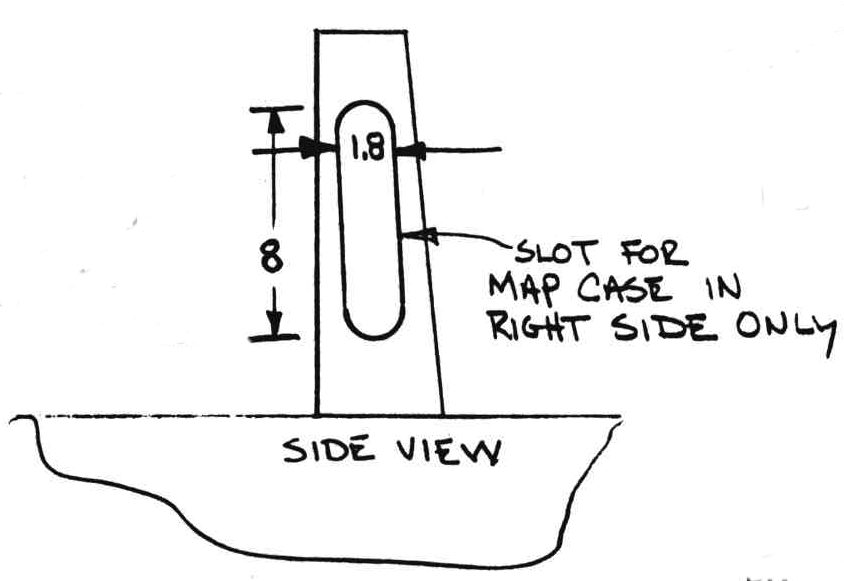 1.8
8
SLOT FOR
MAP CASE IN
RIGHT SIDE ONLY
SIDE VIEW